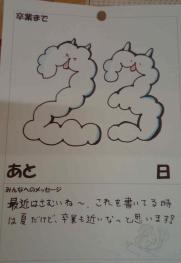 卒業まで
23
あと 日
みんなへのメッセージ
最近はさむいね〜、これを書いてる時
は夏だけど、卒業も近いなっと思います?